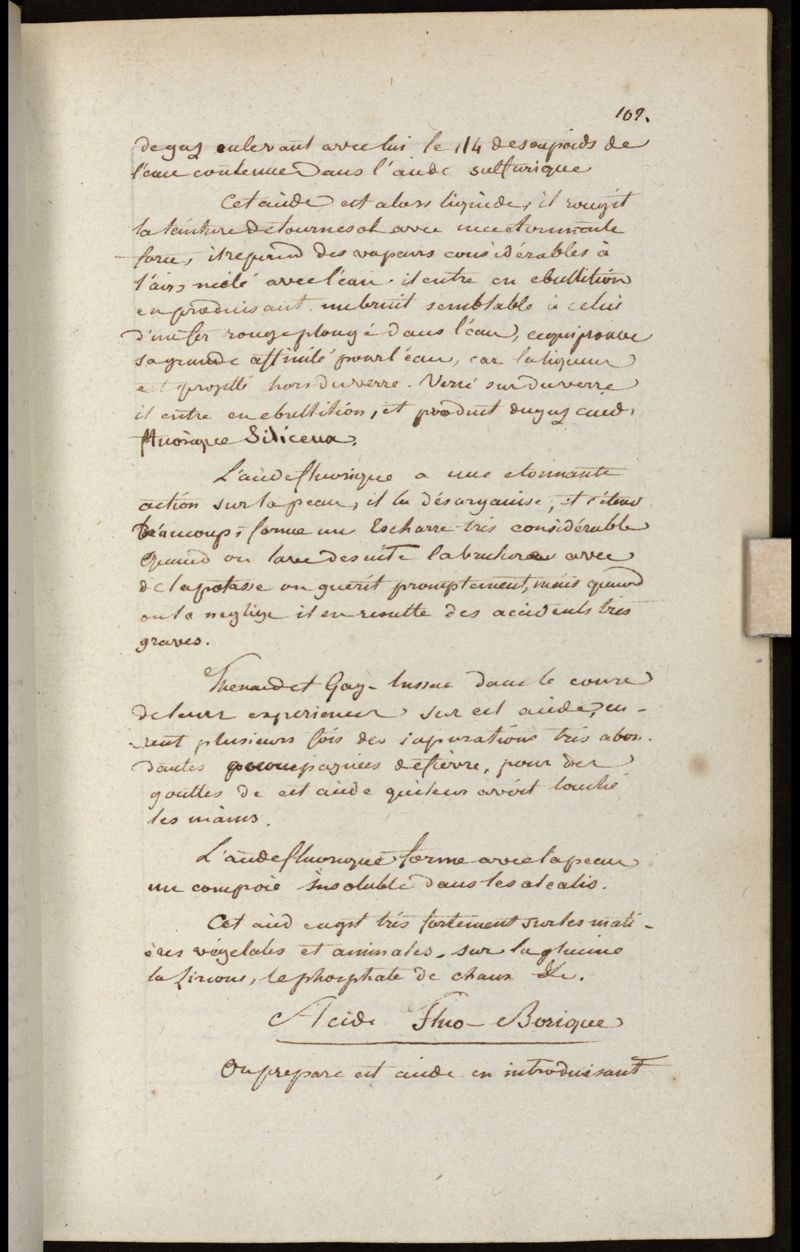 109.
de gaz enlevant avec lui le 1/4 de son poids de
l'eau contenue Dans l'acide sulfurique
Cet acide est alors liquide, il rougit
la teinture de tournesol avec une etonnante
force, il repend des vapeurs considérables à
l'air, mèlé avec l'eau il entre en ebullition
en produisant un bruit semblable à celui
d'un fer rouge plongé Dans l'eau, ce qui prouve
sa grande affinité pour l'eau, car la liqueur
est projetté hors du verre. Versé sur du verre
il entre en ebullition, et produit du gaz acid.
fluorique Siliceux.
L'acide fluorique a une etonnante
action sur la peau, il la désorganise, il s'étend
beaucoup, forme un Escharre très considérable
Quand on lave de suite la bruhure avec
de la potasse on guérit promptement, mais quand
on la neglige il en resulte des accidents très
graves.
Thenard et Gay-Lussac dans le cours
de leurs experiences sur cet acide, eu-
rent plusieurs fois des supurations très abon-
dantes accompagnées de fièvre, pour des
gouttes de cet acide qui leur avoit touché
les mains.
L'acide fluorique forme avec la peau
un composé insoluble dans les alcalis.
Cet acid agit très fortement sur les mati-
ères végétales et animales, sur la glucine
la Zircone, le phosphate de chaux &c.
Acide Fluo-Borique
On prepare cet acide en introduisant